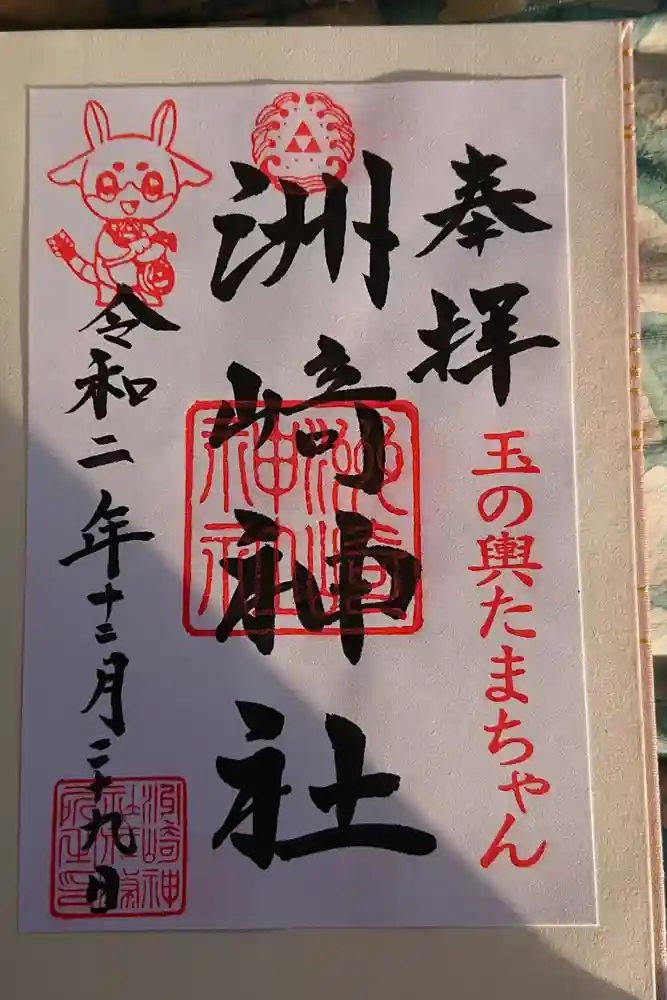 奉拝
玉の輿たまちゃん
洲崎神社
令和二年十二月二十九日
洲崎神社